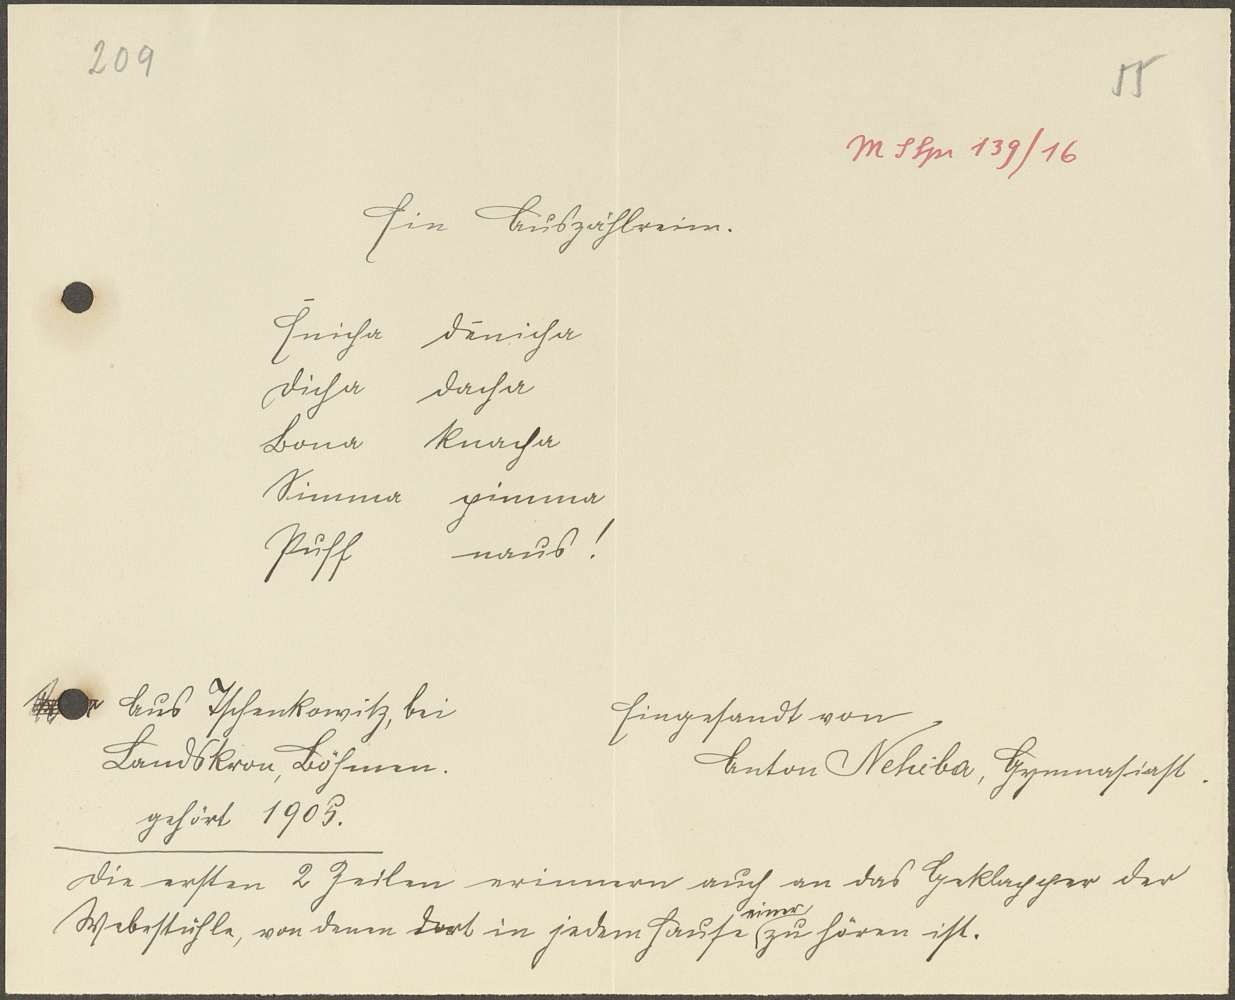 209
55
M S Spr 139/16
Ein Auszählreim.
Ēnicha dēnicha
dicha dacha
Bona knacha
Simma pimma
Puff naus!
Aus Tschenkowitz, bei
Landskron, Böhmen.
gehört 1905.
Eingesandt von
Anton Nehiba, Gymnasiast.
Die ersten 2 Zeilen erinnern auch an das Geklapper der
einer
Webestühle, von denen dort in jedem Hause zu hören ist.